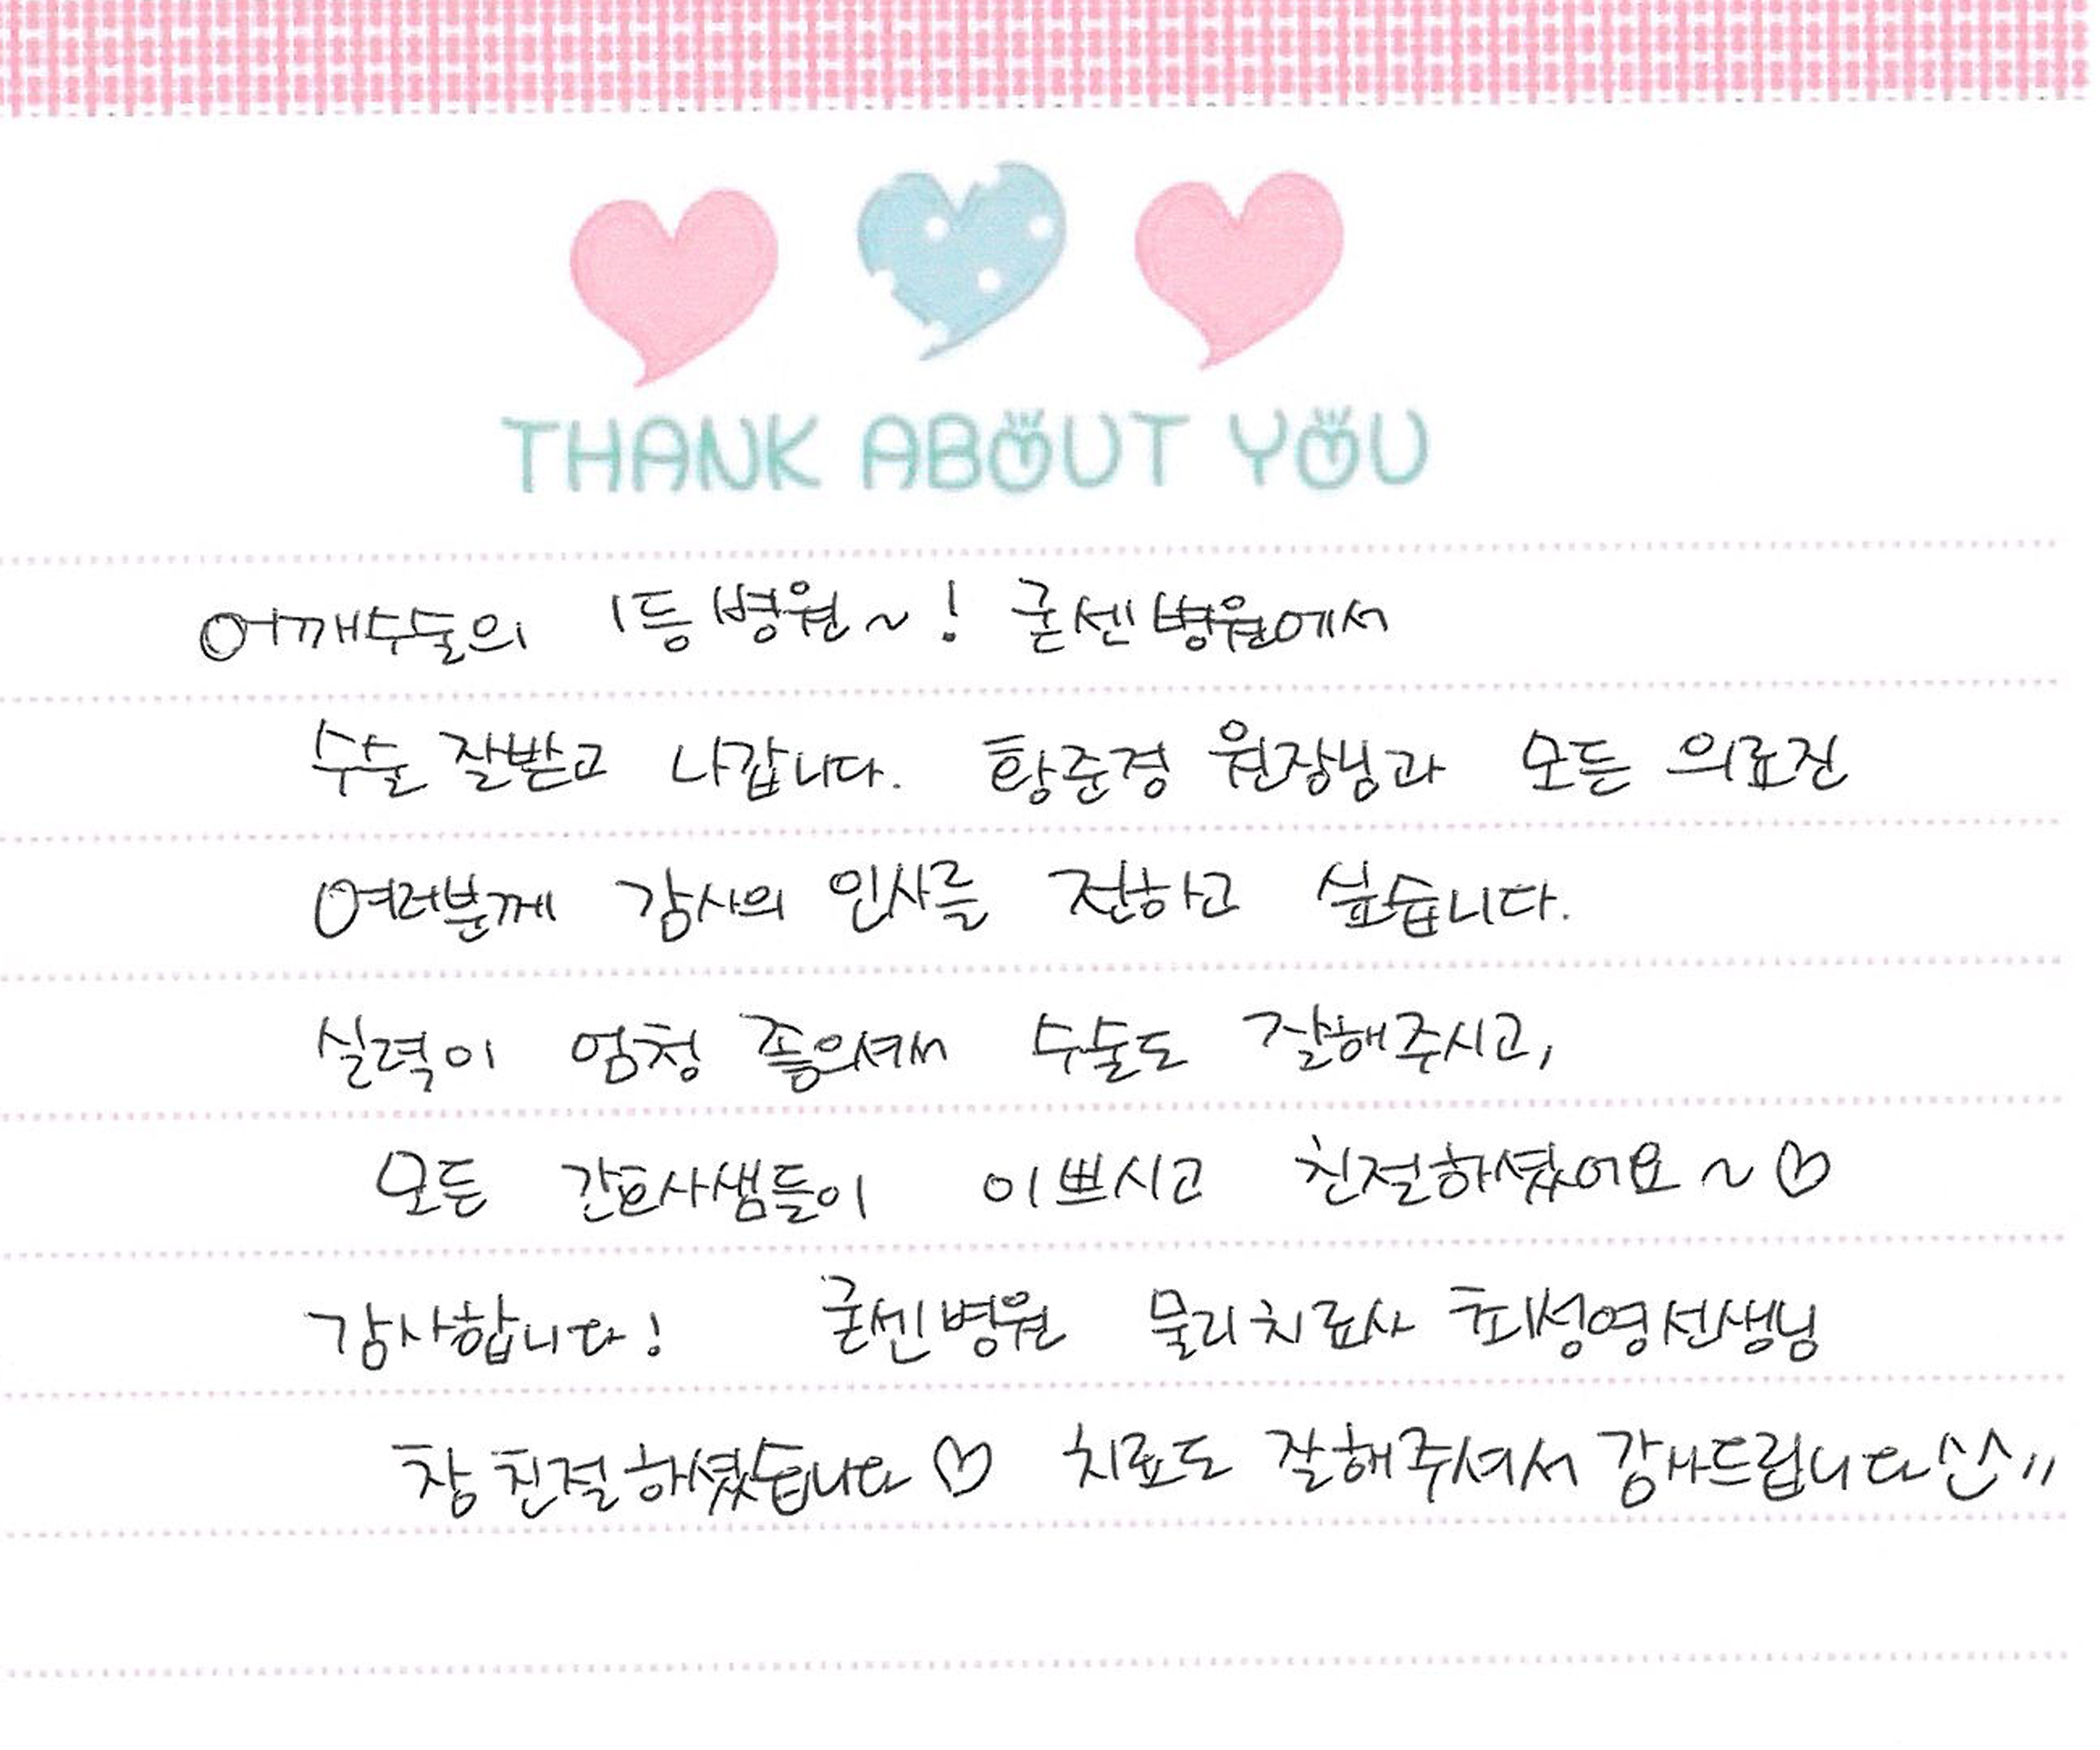 THANK ABOUT YOU
어깨수술의 1등 병원~! 굳센병원에서
수술 잘받고 나갑니다. 황준경 원장님과 모든 의료진
여러분께 감사의 인사를 전하고 싶습니다.
실력이 엄청 좋으셔서 수술도 잘해주시고,
모든 간호사쌤들이 이쁘시고 친절하셨어요~♡
감사합니다! 굳센병원 물리치료사 최성영선생님
참 친절하셨습니다♡ 치료도 잘해주셔서 감사드립니다^^"